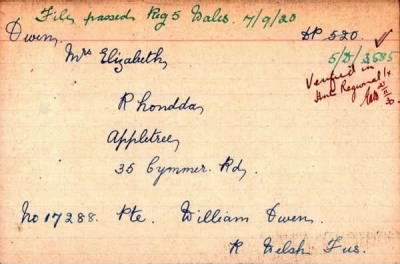 File passed Reg 5 Wales. 7/9/20
Owen, DP 520.
Mrs Elizabeth, 5/D/3685
Verified in
Regional
Rhondda,
Appletree,
35 Cymmer Rd,
No 17288. Pte. William Owen,
R Welsh Fus.